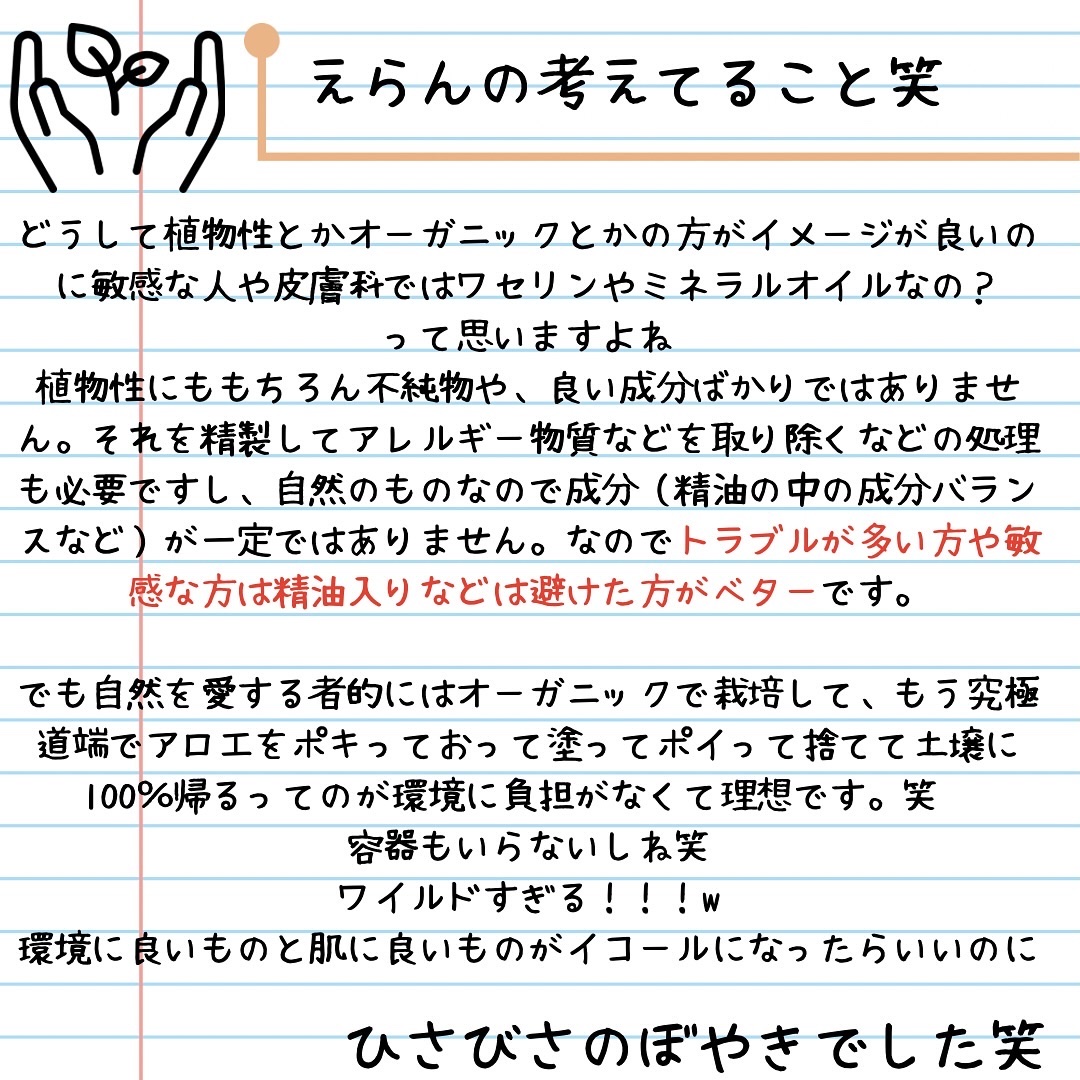 えらんの考えてること笑
どうして植物性とかオーガニックとかの方がイメージが良いの
に敏感な人や皮膚科ではワセリンやミネラルオイルなの？
って思いますよね
植物性にももちろん不純物や、良い成分ばかりではありませ
ん。それを精製してアレルギー物質などを取り除くなどの処理
も必要ですし、自然のものなので成分（精油の中の成分バラン
スなど）が一定ではありません。なのでトラブルが多い方や敏
感な方は精油入りなどは避けた方がベターです。
でも自然を愛する者的にはオーガニックで栽培して、もう究極
道端でアロエをポキっておって塗ってポイって捨てて土壌に
100%帰るってのが環境に負担がなくて理想です。笑
容器もいらないしね笑
ワイルドすぎる！！！w
環境に良いものと肌に良いものがイコールになったらいいのに
ひさびさのぼやきでした笑